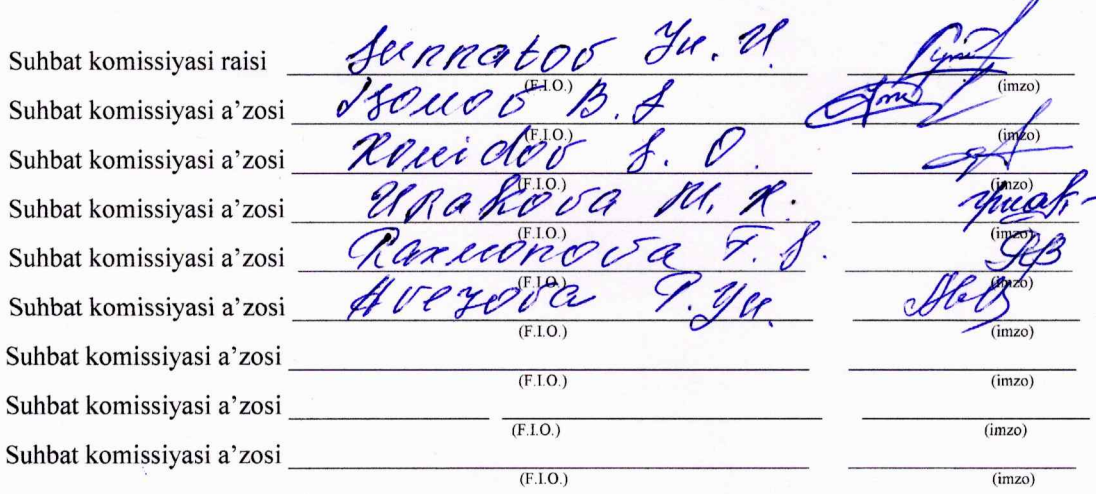 Suhbat komissiyasi raisi Sunnatov Yu. U. (F.I.O.) (imzo)
Suhbat komissiyasi a’zosi Isomov B. S (F.I.O.) (imzo)
Suhbat komissiyasi a’zosi Xomidov S. O. (F.I.O.) (imzo)
Suhbat komissiyasi a’zosi Urakova M. X. (F.I.O.) (imzo)
Suhbat komissiyasi a’zosi Raxmonova F. S. (F.I.O.) (imzo)
Suhbat komissiyasi a’zosi Avezova P. Yu. (F.I.O.) (imzo)
Suhbat komissiyasi a’zosi (F.I.O.) (imzo)
Suhbat komissiyasi a’zosi (F.I.O.) (imzo)
Suhbat komissiyasi a’zosi (F.I.O.) (imzo)